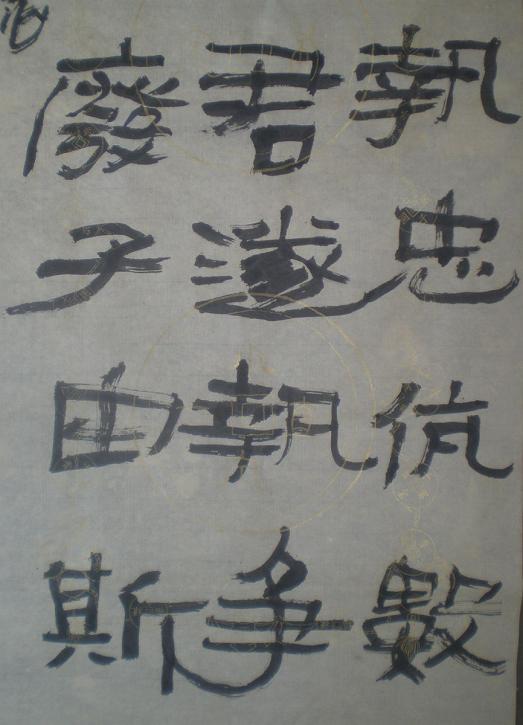 執忠伉數
君遂執争
廢子由斯